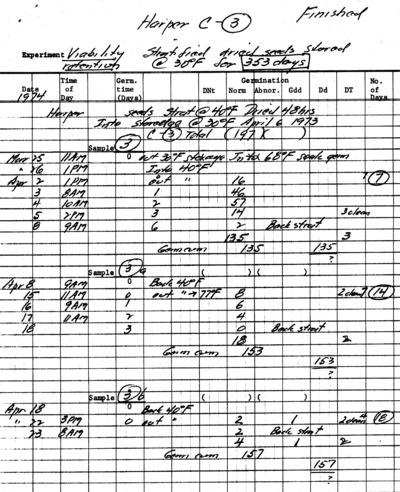 Harper C-3 Finished
Experiment Viability retention Stratified dried seeds stored @ 30°F for 353 days
Date 1974 Time of Day Germ. time (Days) DNt Germination Norm Abnor. Gdd Dd DT No. of Days
Harper seeds Strat @ 40°F Dried 48hrs
Into storage @ 30°F April 6 1973
C-3 Total (197)(
Sample 3
Mar 25 11AM 0 out 30°F storage Into 68°F soak germ
" 26 1PM Into 40°F
Apr 2 1PM 0 out " 16 7
3 8AM 1 46
4 10AM 2 57
5 2PM 3 14 3 clean
8 9AM 6 2 Back strat
135 3
Germ cum 135 135
?
Sample 3/a ( )( )
Apr 8 9AM 0 Back 40°F
15 11AM 0 out " → 77°F 8 2 clean 14
16 9AM 1 6
17 11AM 2 4
18 3 0 Back strat
18 2
Germ cum 153
153
?
Sample 3/b ( )( )
Apr 18 0 Back 40°F
" 22 3PM 0 out " 2 1 2 clean 4 18
23 8AM 2 Back strat
4 1 2
Germ cum 157
157
?